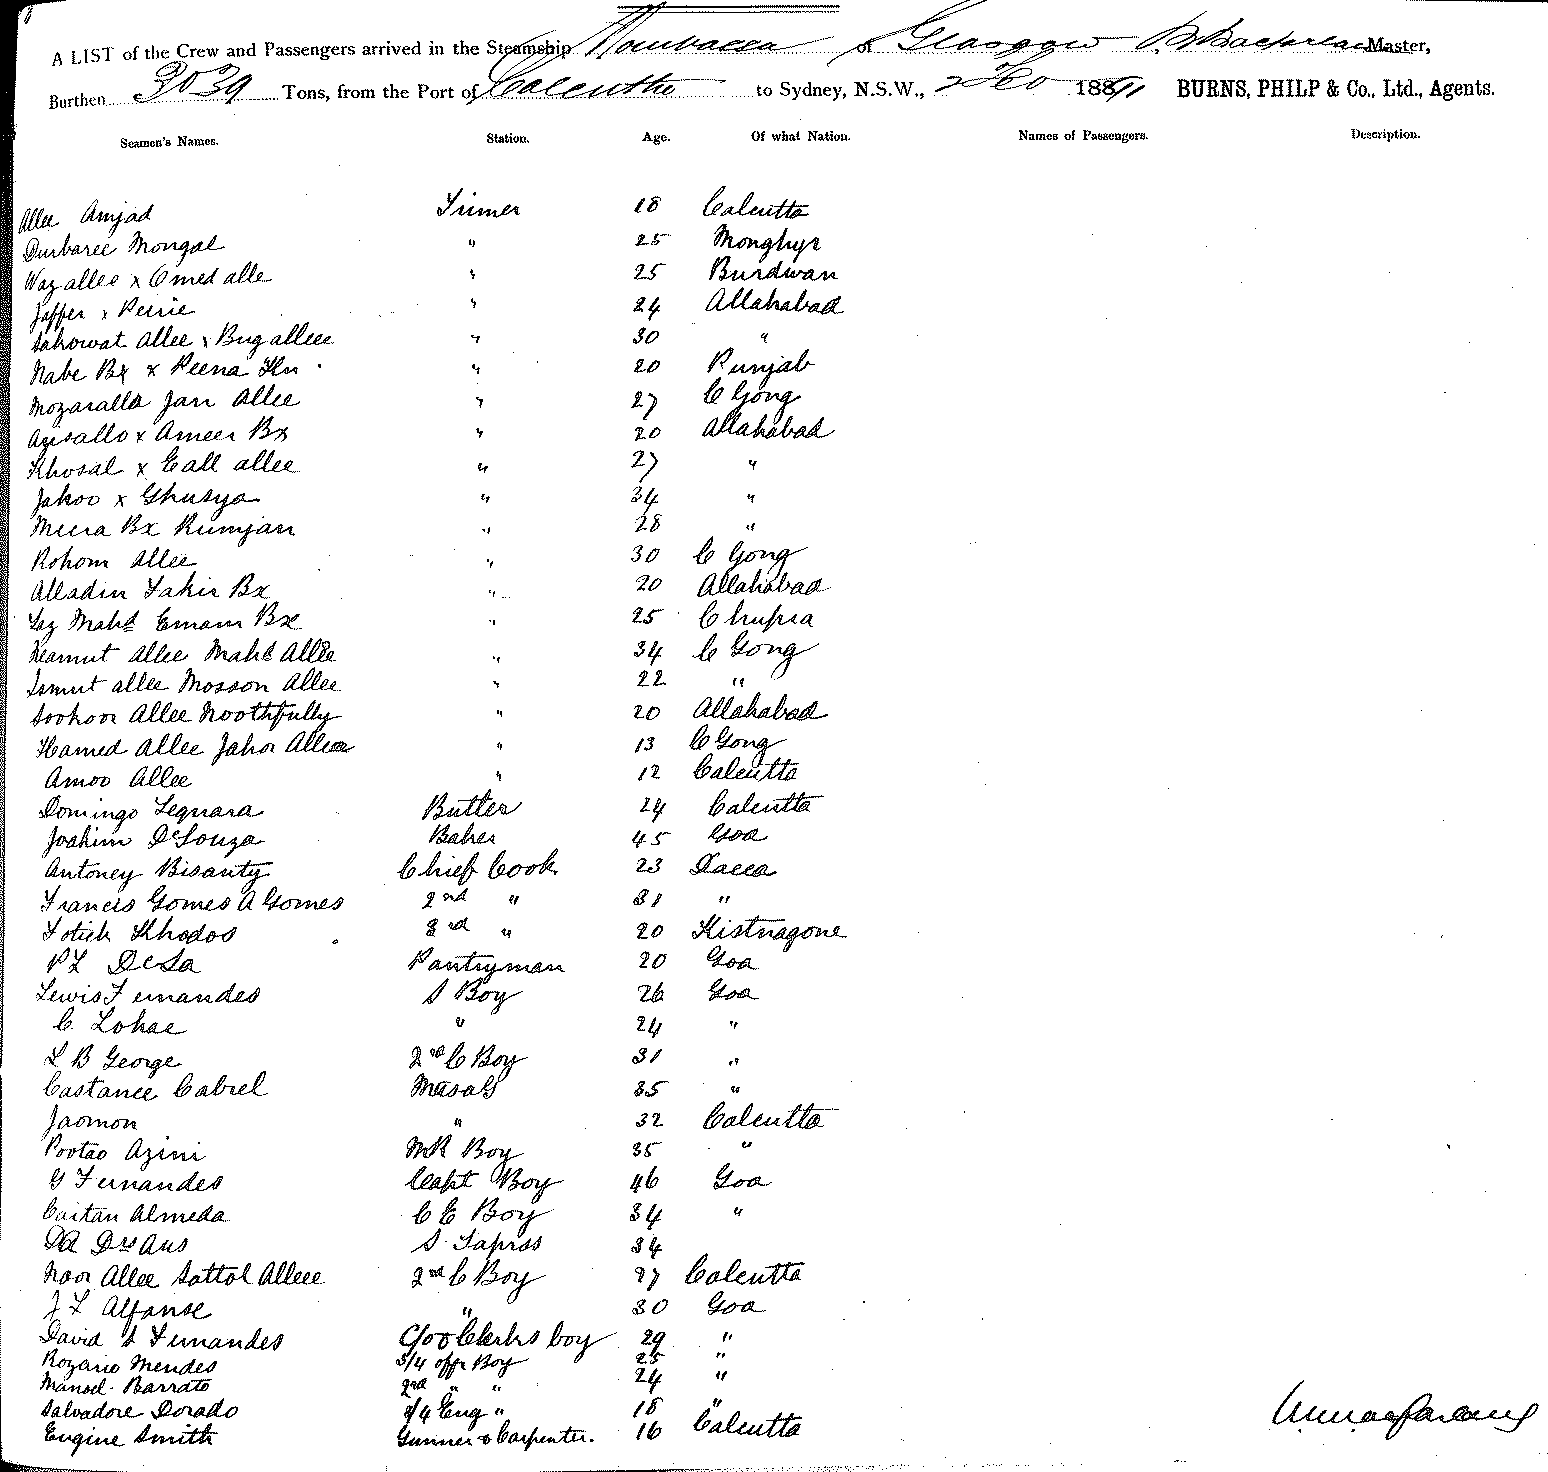 A LIST of the Crew and Passengers arrived in the Steamship Nambucca of Glasgow Master,
Burthen 3039 Tons, from the Port of Calcutta to Sydney, N.S.W., 2 Feb 1891 BURNS, PHILP & Co., Ltd., Agents.
Seamen's Names. Station. Age. Of what Nation. Names of Passengers. Description.
Allee Amjad Trimer 18 Calcutta
Durbaree Mongal " 25 Monghyr
Wazallee x Omed alle " 25 Burdwan
Jaffer x Peirie " 24 Allahabad
Sahowat Allee x Bugalleee " 30 "
Nabe Bx x Peena Kn " 20 Punjab
Mozaralla Jan Allee " 27 C Gong
Ausallo x Ameer Bx " 20 Allahabad
Khosal x Call allee " 27 "
Jahoo x Ghusya " 34 "
Meera Bx Rumjan " 28 "
Rohom Allee " 30 C Gong
Alladin Fakir Bx " 20 Allahabad
Faz Mahd Emam Bx " 25 Chupra
Keamut Allee Mahd Allee " 34 C Gong
Ismut allee Mosson Allee " 22 "
Soohoor Allee Noothfully " 20 Allahabad
Hamed Allee Jahor Alleea " 13 C Gong
Amoo Allee " 12 Calcutta
Domingo Leguara Butler 24 Calcutta
Joahim DeSouza Baker 45 Goa
Antoney Bisanty Chief Cook 23 Dacca
Francis Gomes A Gomes 2nd " 31 "
Fotick Khodos 3rd " 20 Kistnagone
P L DeSa Pantryman 20 Goa
Lewis Fernandes S Boy 26 Goa
C. Lohae " 24 "
L B George 2nd C Boy 31 "
Castanee Cabrel Masals 35 "
Jaomon " 32 Calcutta
Pootao Azini MR Boy 35 "
G Fernandes Capt Boy 46 Goa
Caitan Almeda C E Boy 34 "
S Tapsss 34
Noor Allee Sattol Alleee 2nd C Boy 27 Calcutta
J L Alfonse " 30 Goa
David S Fernandes C/oo Clerks boy 29 "
Rozario Mendes 3/4 offr Boy 25 "
Manoel Barrato 2nd " " 24 "
Salvadore Dorado 3/4 Eng " 18 "
Eugine Smith Gunner & Carpenter. 16 Calcutta